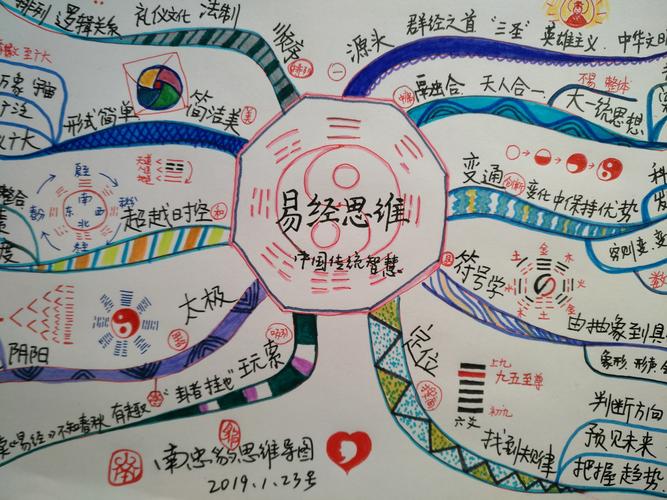 易经思维
中国传统智慧
源头
一
群经之首
"三圣"
英雄主义
中华文明
融合
天人合一
不易 整体
大一统思想
变通
创新
变化中保持优势
穷则变
符号学
土 金 木
由抽象到具
象形 形声
定位
上九
九五至尊
初九
六爻
找到规律
判断方向
预见未来
把握趋势
排列 逻辑关系
礼仪文化 法制
秩序
形式简单
简洁美
美
超越时空
南
东 西
北
天道
人道
地道
太极
阴阳
玩索
"卦者挂也"
有趣
不知春秋
思维导图
2019.1.23号